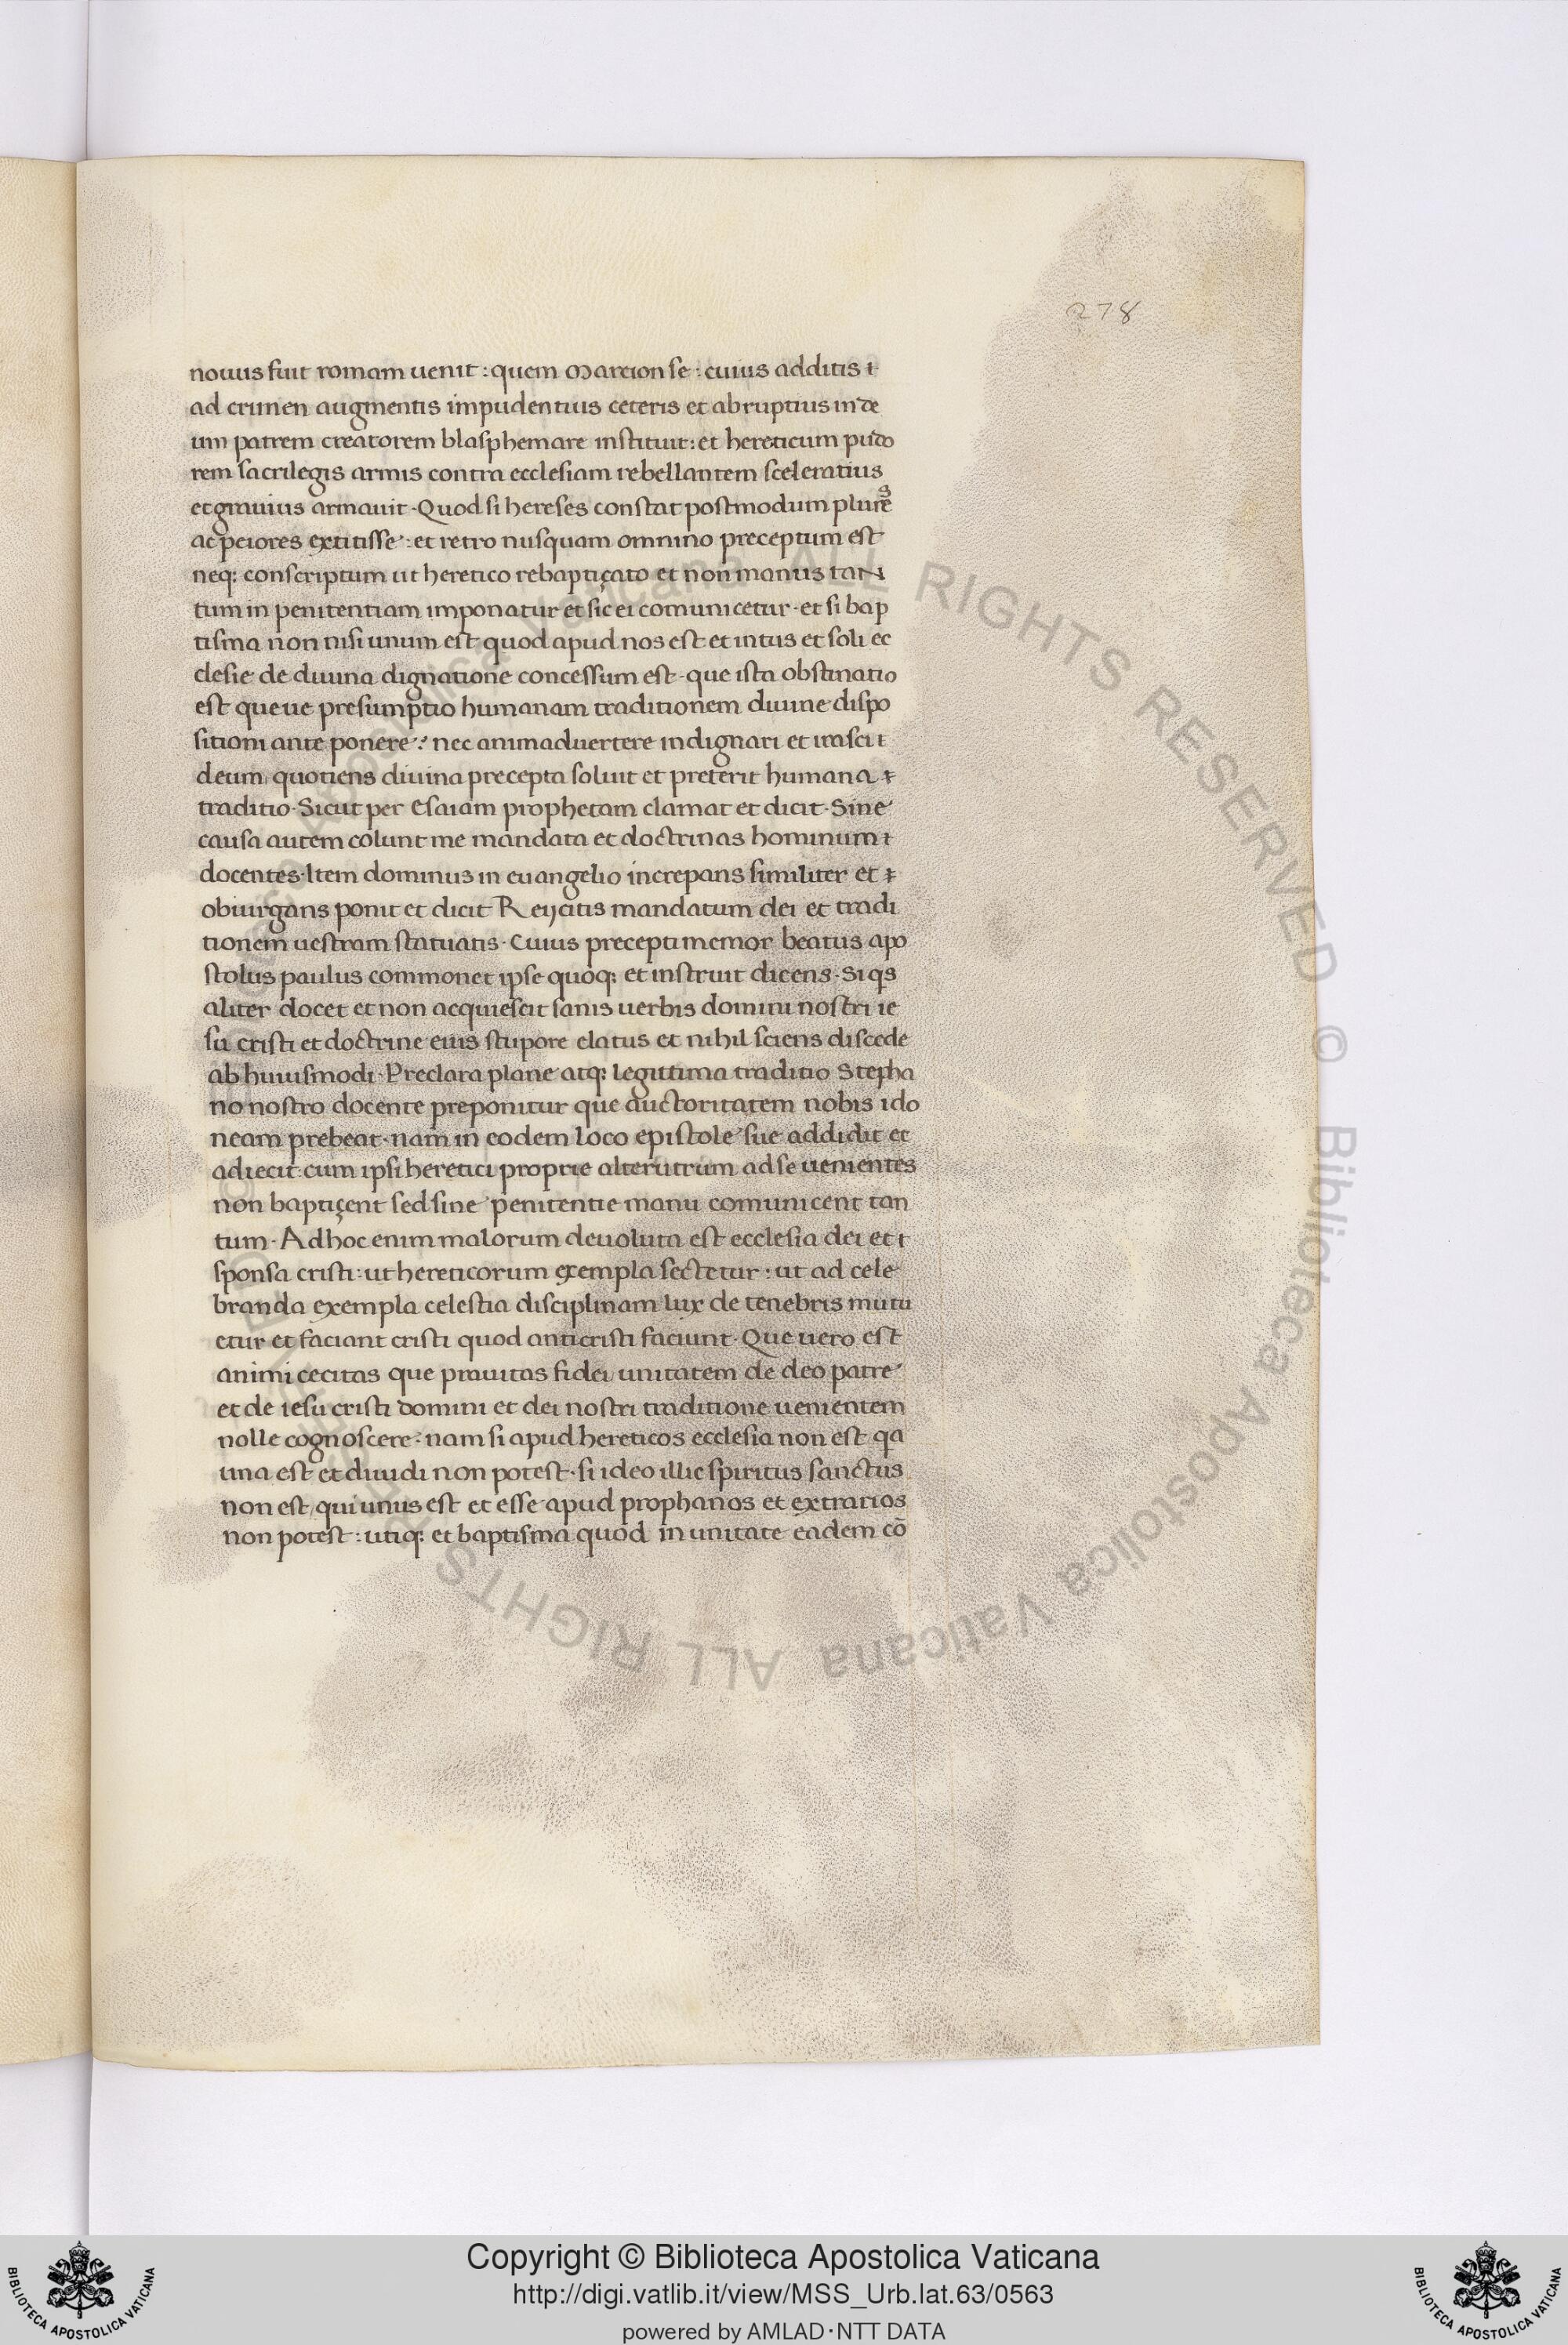 278
nouus fuit romam uenit : quem Marcion se : cuius additis
ad crimen augmentis impudentius ceteris et abruptius in de
um patrem creatorem blasphemare instituit : et hereticum pudo
rem sacrilegis armis contra ecclesiam rebellantem sceleratius
et grauius armauit · Quod si hereses constat postmodum plures
ac peiores extitisse : et retro nusquam omnino preceptum est
neq; conscriptum ut heretico rebaptiçato et non manus tan
tum in penitentiam imponatur et sic ei comunicetur · et si bap
tisma non nisi unum est quod apud nos est et intus et soli ec
clesie de diuina dignatione concessum est · que ista obstinatio
est que ue presumptio humanam traditionem diuine dispo
sitioni ante ponere : nec animaduertere indignari et irasci
deum quotiens diuina precepta soluit et preterit humana
traditio · Sicut per Esaiam prophetam clamat et dicit · Sine
causa autem colunt me mandata et doctrinas hominum
docentes · Item dominus in euangelio increpans similiter et
obiurgans ponit et dicit Reijcitis mandatum dei et tradi
tionem uestram statuatis · Cuius precepti memor beatus apo
stolus paulus commonet ipse quoq; et instruit dicens · Si qs
aliter docet et non acquiescit sanis uerbis domini nostri ie
su cristi et doctrine eius stupore elatus et nihil sciens discede
ab huiusmodi · Preclara plane atq; legittima traditio Stepha
no nostro docente preponitur que auctoritatem nobis ido
neam prebeat · nam in eodem loco epistole sue addidit et
adiecit · cum ipsi heretici proprie alterutrum ad se uenientes
non baptiçent sed sine penitentie manu comunicent tan
tum · Ad hoc enim malorum deuoluta est ecclesia dei et
sponsa cristi : ut hereticorum exempla sectetur : ut ad cele
branda exempla celestia disciplinam lux de tenebris mutu
etur et faciant cristi quod anticristi faciunt · Que uero est
animi cecitas que prauitas fidei unitatem de deo patre
et de iesu cristi domini et dei nostri traditione uenientem
nolle cognoscere : nam si apud hereticos ecclesia non est qa
una est et diuidi non potest · si ideo illic spiritus sanctus
non est qui unus est et esse apud prophanos et extrarios
non potest : utiq; et baptisma quod in unitate eadem cō
© Biblioteca Apostolica Vaticana ALL RIGHTS RESERVED © Biblioteca Apostolica Vaticana ALL RIGHTS RESERVED
Copyright © Biblioteca Apostolica Vaticana
http://digi.vatlib.it/view/MSS_Urb.lat.63/0563
powered by AMLAD·NTT DATA
BIBLIOTECA APOSTOLICA VATICANA
BIBLIOTECA APOSTOLICA VATICANA